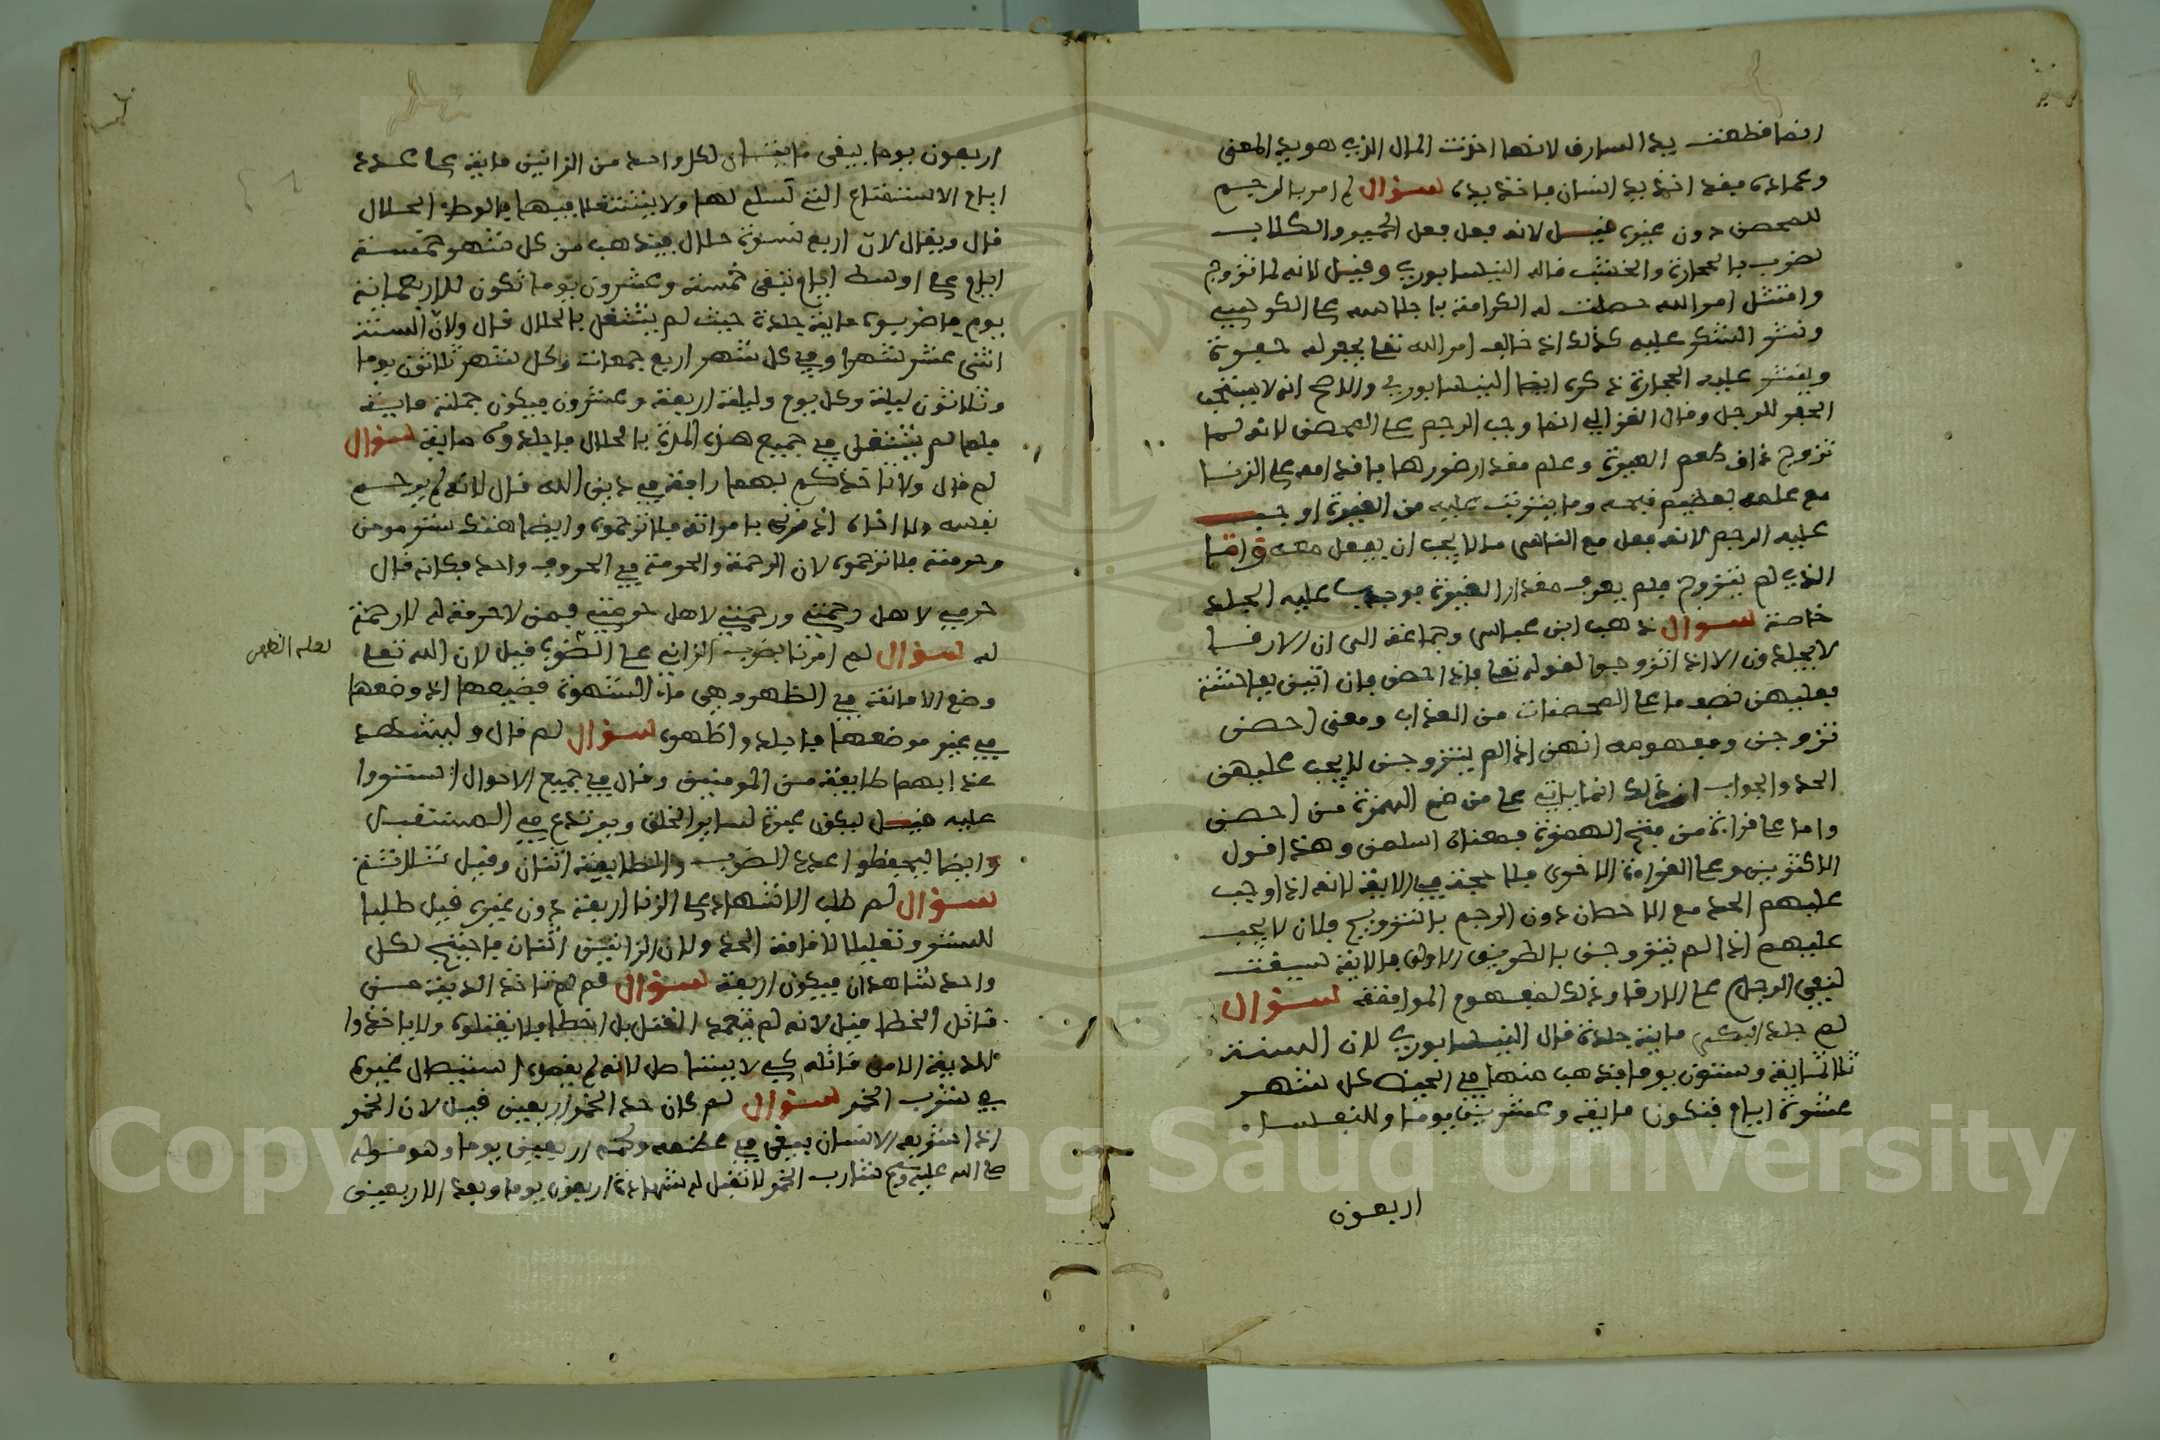 انما قطعت يد السارق لانها اخذت المال الذي هو يد المعنى
وعماده فقد اخذ يد انسان فاخذ يده سؤال لم امر بالرجم
للمحصن دون غيره قيل لانه فعل فعل الحمير والكلاب
تضرب بالحجارة والخشب قاله النيسابوري وقيل لانه لما تزوج
وامتثل امر الله حصلت له الكرامة باجلاسه على الكرسي
ونثر السكر عليه كذلك اذ خالف امر الله تعلى يحفر له حفرة
وينثر عليه الحجارة ذكره ايضا النيسابوري والاصح انه لا يستحب
الحفر للرجل وقال الغزالي انما وجب الرجم على المحصن لانه لما
تزوج ذاق طعم الغيرة وعلم مقدار ضررها فاقدامه على الزنا
مع علمه بعظيم قبحه وما يترتب عليه من الغيرة اوجب
عليه الرجم لانه فعل مع الناس ما لا يحب ان يفعل معه واما
الذي لم يتزوج فلم يعرف مقدار الغيرة فوجب عليه الجلد
خاصة سؤال ذهب ابن عباس وجماعة الى ان الارقا
لا يجلدون الا اذا تزوجوا لقوله تعلى فاذا احصن فان اتين بفاحشة
فعليهن نصف ما على المحصنات من العذاب ومعنى احصن
تزوجن ومفهومه انهن اذا لم يتزوجن لا يجب عليهن
الحد والجواب ان ذلك انما ياتي على من ضم الهمزة من احصن
واما على قراءة من فتح الهمزة فمعناه اسلمن وهذا قول
الاكثرين وعلى القراءة الاخرى فلا حجة في الاية لانه اذا وجب
عليهم الحد مع الاحصان دون الرجم بالتزويج فلان لا يجب
عليهم اذا لم يتزوجن بالطريق الاولى فالاية سيقت
لنفي الرجم على الارقا وذلك لمفهوم الموافقة سؤال
لم جلد البكر ماية جلدة قال النيسابوري لان السنة
ثلاثماية وستون يوما يذهب منها في الحيض كل شهر
عشرة ايام فتكون ماية وعشرين يوما وللنفساء
اربعون
اربعون يوما يبقى مايتان لكل واحد من الزانيين ماية على عدد
ايام الاستمتاع التي تسلم لها ولا يشتغلا فيها بالوطء الحلال
قال ويقال لان اربع نسوة حلال فيذهب من كل شهر خمسة
ايام على اوسط ايام تبقى خمسة وعشرون يوما تكون للاربع ماية
يوم فاضربوه ماية جلدة حيث لم يشتغل بالحلال قال ولان السنة
اثنى عشر شهرا وفي كل شهر اربع جمعات وكل شهر ثلاثون يوما
وثلاثون ليلة وكل يوم وليلة اربعة وعشرون فيكون جملته ماية
فلما لم يشتغل في جميع هذه المدة بالحلال فاجلدوه ماية سؤال
لم قال ولا تاخذكم بهما رافة في دين الله قال لانه لم يرحم
نفسه ولا اخاه اذ مزني بامراته فلا ترحموه وايضا هتك ستر مومن
وحرمته فلا ترحموه لان الرحمة والحرمة في الحروف واحد فكانه قال
حرمي لاهل رحمتي ورحمتي لاهل حرمتي فمن لا حرمة له لا رحمة
له سؤال لم امرنا بضرب الزاني على الضهر قيل لان الله تعلى
لعله الظهر
وضع الامانة في الظهر وهي ماء الشهوة فضيعها اذ وضعها
في غير موضعها فاجلدوا ظهره سؤال لم قال وليشهد
عذابهما طايفة من المومنين وقال في جميع الاحوال استتروا
عليه قيل ليكون عبرة لساير الخلق ويرتدع في المستقبل
وايضا ليحفظوا عدد الضرب والطايفة اثنان وقيل ثلاثة
سؤال لم طلب الاشهاد على الزنا اربعة دون غيره قيل طلبا
للستر وتقليلا لاقامة الحد ولان الزانيين اثنان فاحتيج لكل
واحد شاهدان فيكون اربعة سؤال لم لم تاخذ الدية من
قاتل الخطا قيل لانه لم يتعمد القتل بل اخطا فلا يقتلوه ولا ياخذوا
الدية الا من عاقلته كي لا يستاصل لانه لم يقصد استيصال غيره
في شرب الخمر سؤال لم كان حد الخمر اربعين قيل لان الخمر
اذا شربه الانسان يبقى في عظمه ولحمه اربعين يوما وهو قوله
صلى الله عليه وسلم شارب الخمر لا تقبل له شهادة اربعون يوما وبعد الاربعين